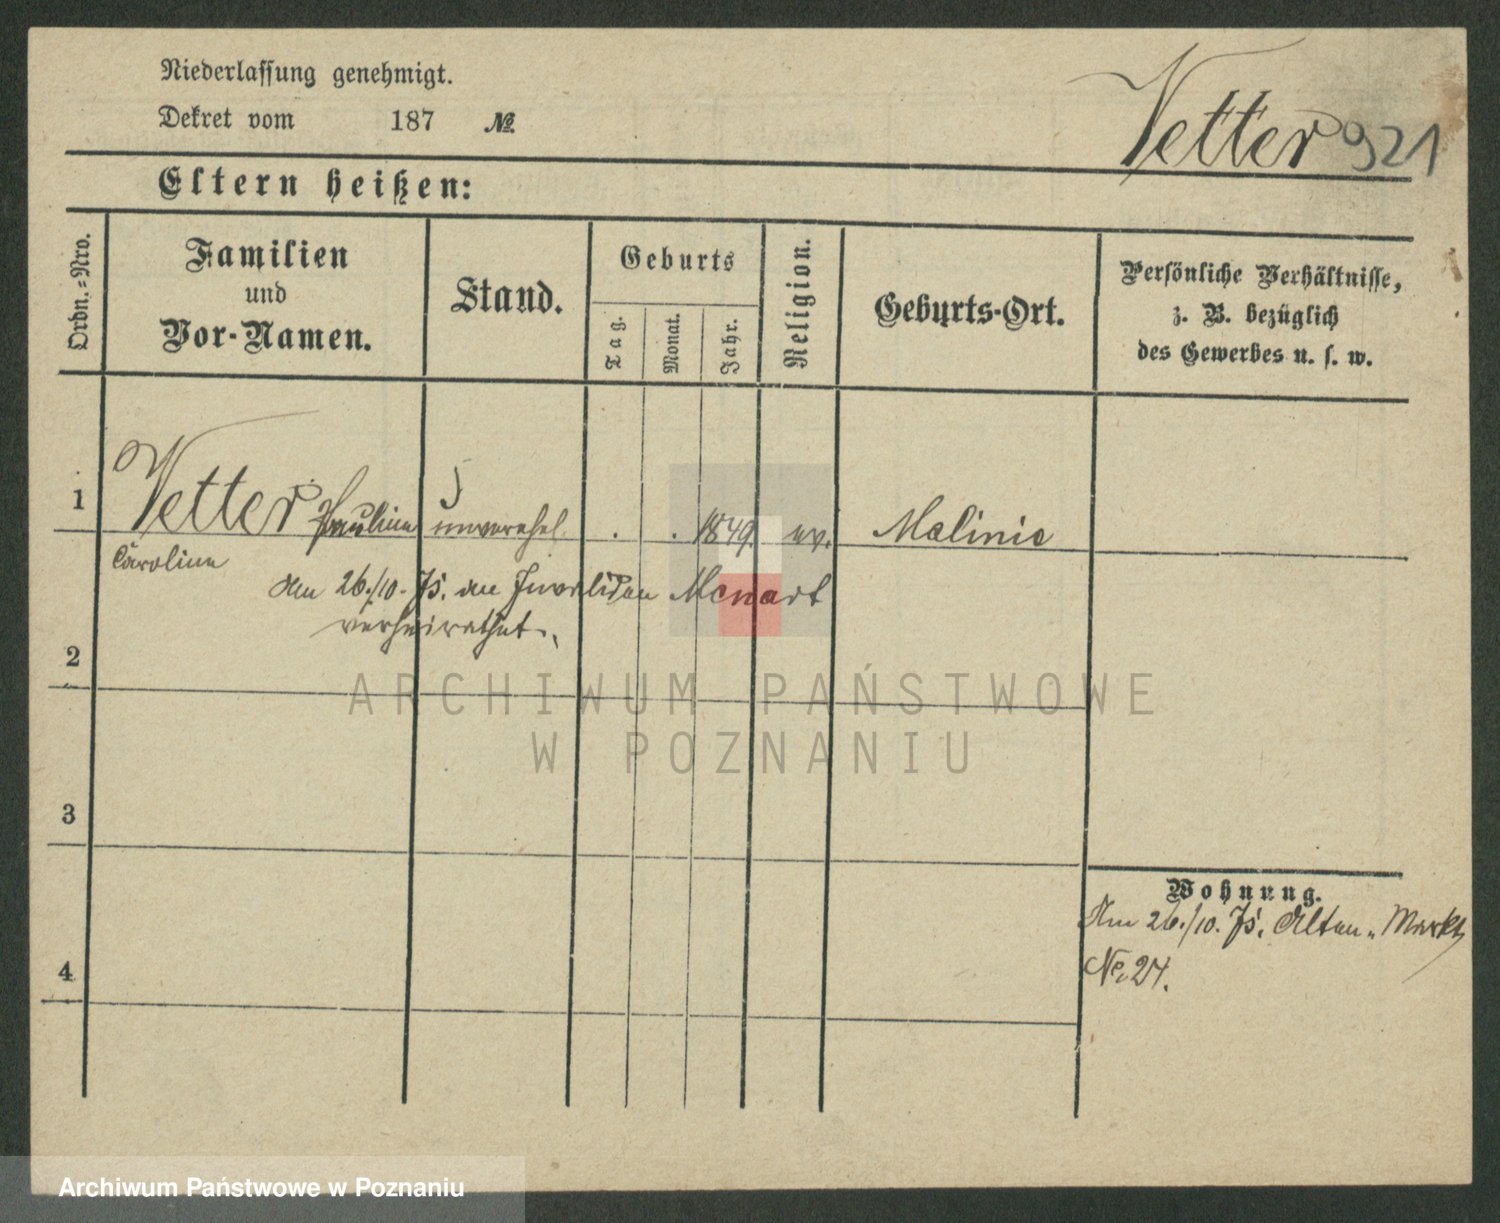 Niederlassung genehmigt.
Dekret vom 187 №
Vetter 921
Eltern heißen:
Ordn.-Nro.
Familien
und
Vor-Namen.
Stand.
Geburts
Tag.
Monat.
Jahr.
Religion.
Geburts-Ort.
Persönliche Verhältnisse,
z. B. bezüglich
des Gewerbes u. s. w.
1 Vetter Pauline unverehel. . . 1849. ev. Malinie
Caroline
Am 26./10. 75. an Invaliden Menart
verheirathet.
2
ARCHIWUM PAŃSTWOWE
W POZNANIU
3
Wohnung.
Am 26./10. 75. Alten-Markt
No. 24.
4
Archiwum Państwowe w Poznaniu